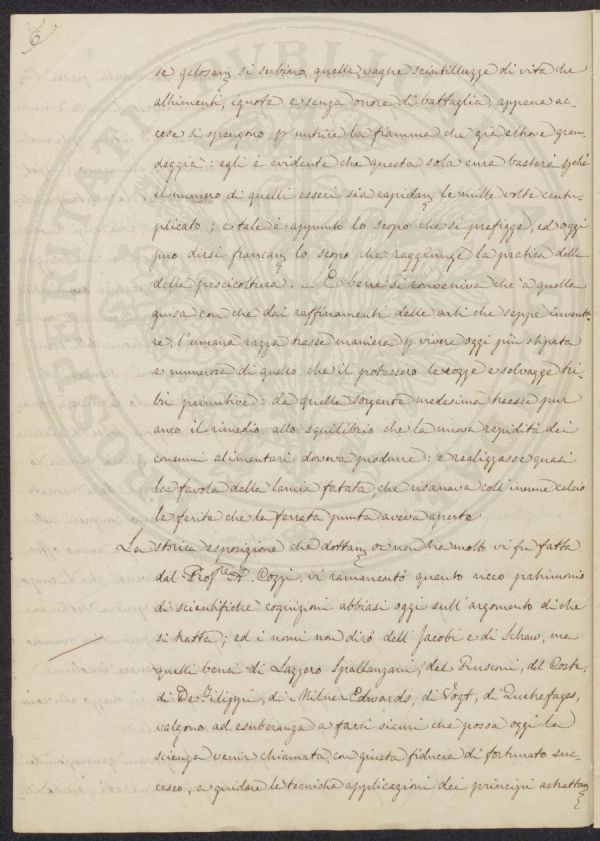 6
se gelosam si serbino, quelle vaghe scintilluzze di vita che
altrimenti, ignote e senza onore di battaglia, appena ac-
cese si spengono p nutrire la fiamma che già altrove gran-
deggia: egli è evidente che questa sola cura basterà
il numero di quelli esseri sia rapidam le mille volte centu-
plicato; e tale è appunto lo scopo che si prefigge, ed oggi
può dirsi francam lo scopo che raggiunge la pratica della
della pescicoltura. _ E bene si conveniva che a quella
guisa con che dai raffinamenti delle arti che seppe inventa-
re, l'umana razza trasse maniera p vivere oggi più stipata
e numerosa di quello che il potessero le rozze e selvagge tri-
bù primitive: da quella sorgente medesima traesse pur
anco il rimedio allo squilibrio che la nuova rapidità dei
consumi alimentari doveva produrre: e realizzasse quasi
la favola della lancia fatata, che risanava coll'inerme calcio
le ferite che la ferrata punta aveva aperte
La storica esposizione che dottam or non ha molto vi fu fatta
dal Prof.re A. Cozzi, vi ramentò quanto ricco patrimonio
di scientifiche cognizioni abbiasi oggi sull'argomento di che
si tratta; ed i nomi non dirò dell'Jacobi e di Schaw, ma
quelli bensì di Lazzero Spallanzani, del Rusconi, del Coste,
di De Filippi, di Milner Edwards, di Vogt, di Quatrefages,
valgono ad esuberanza a farci sicuri che possa oggi la
scienza venir chiamata, con giusta fiducia di fortunato suc-
cesso, a guidare le tecniche applicazioni dei principi astrattam